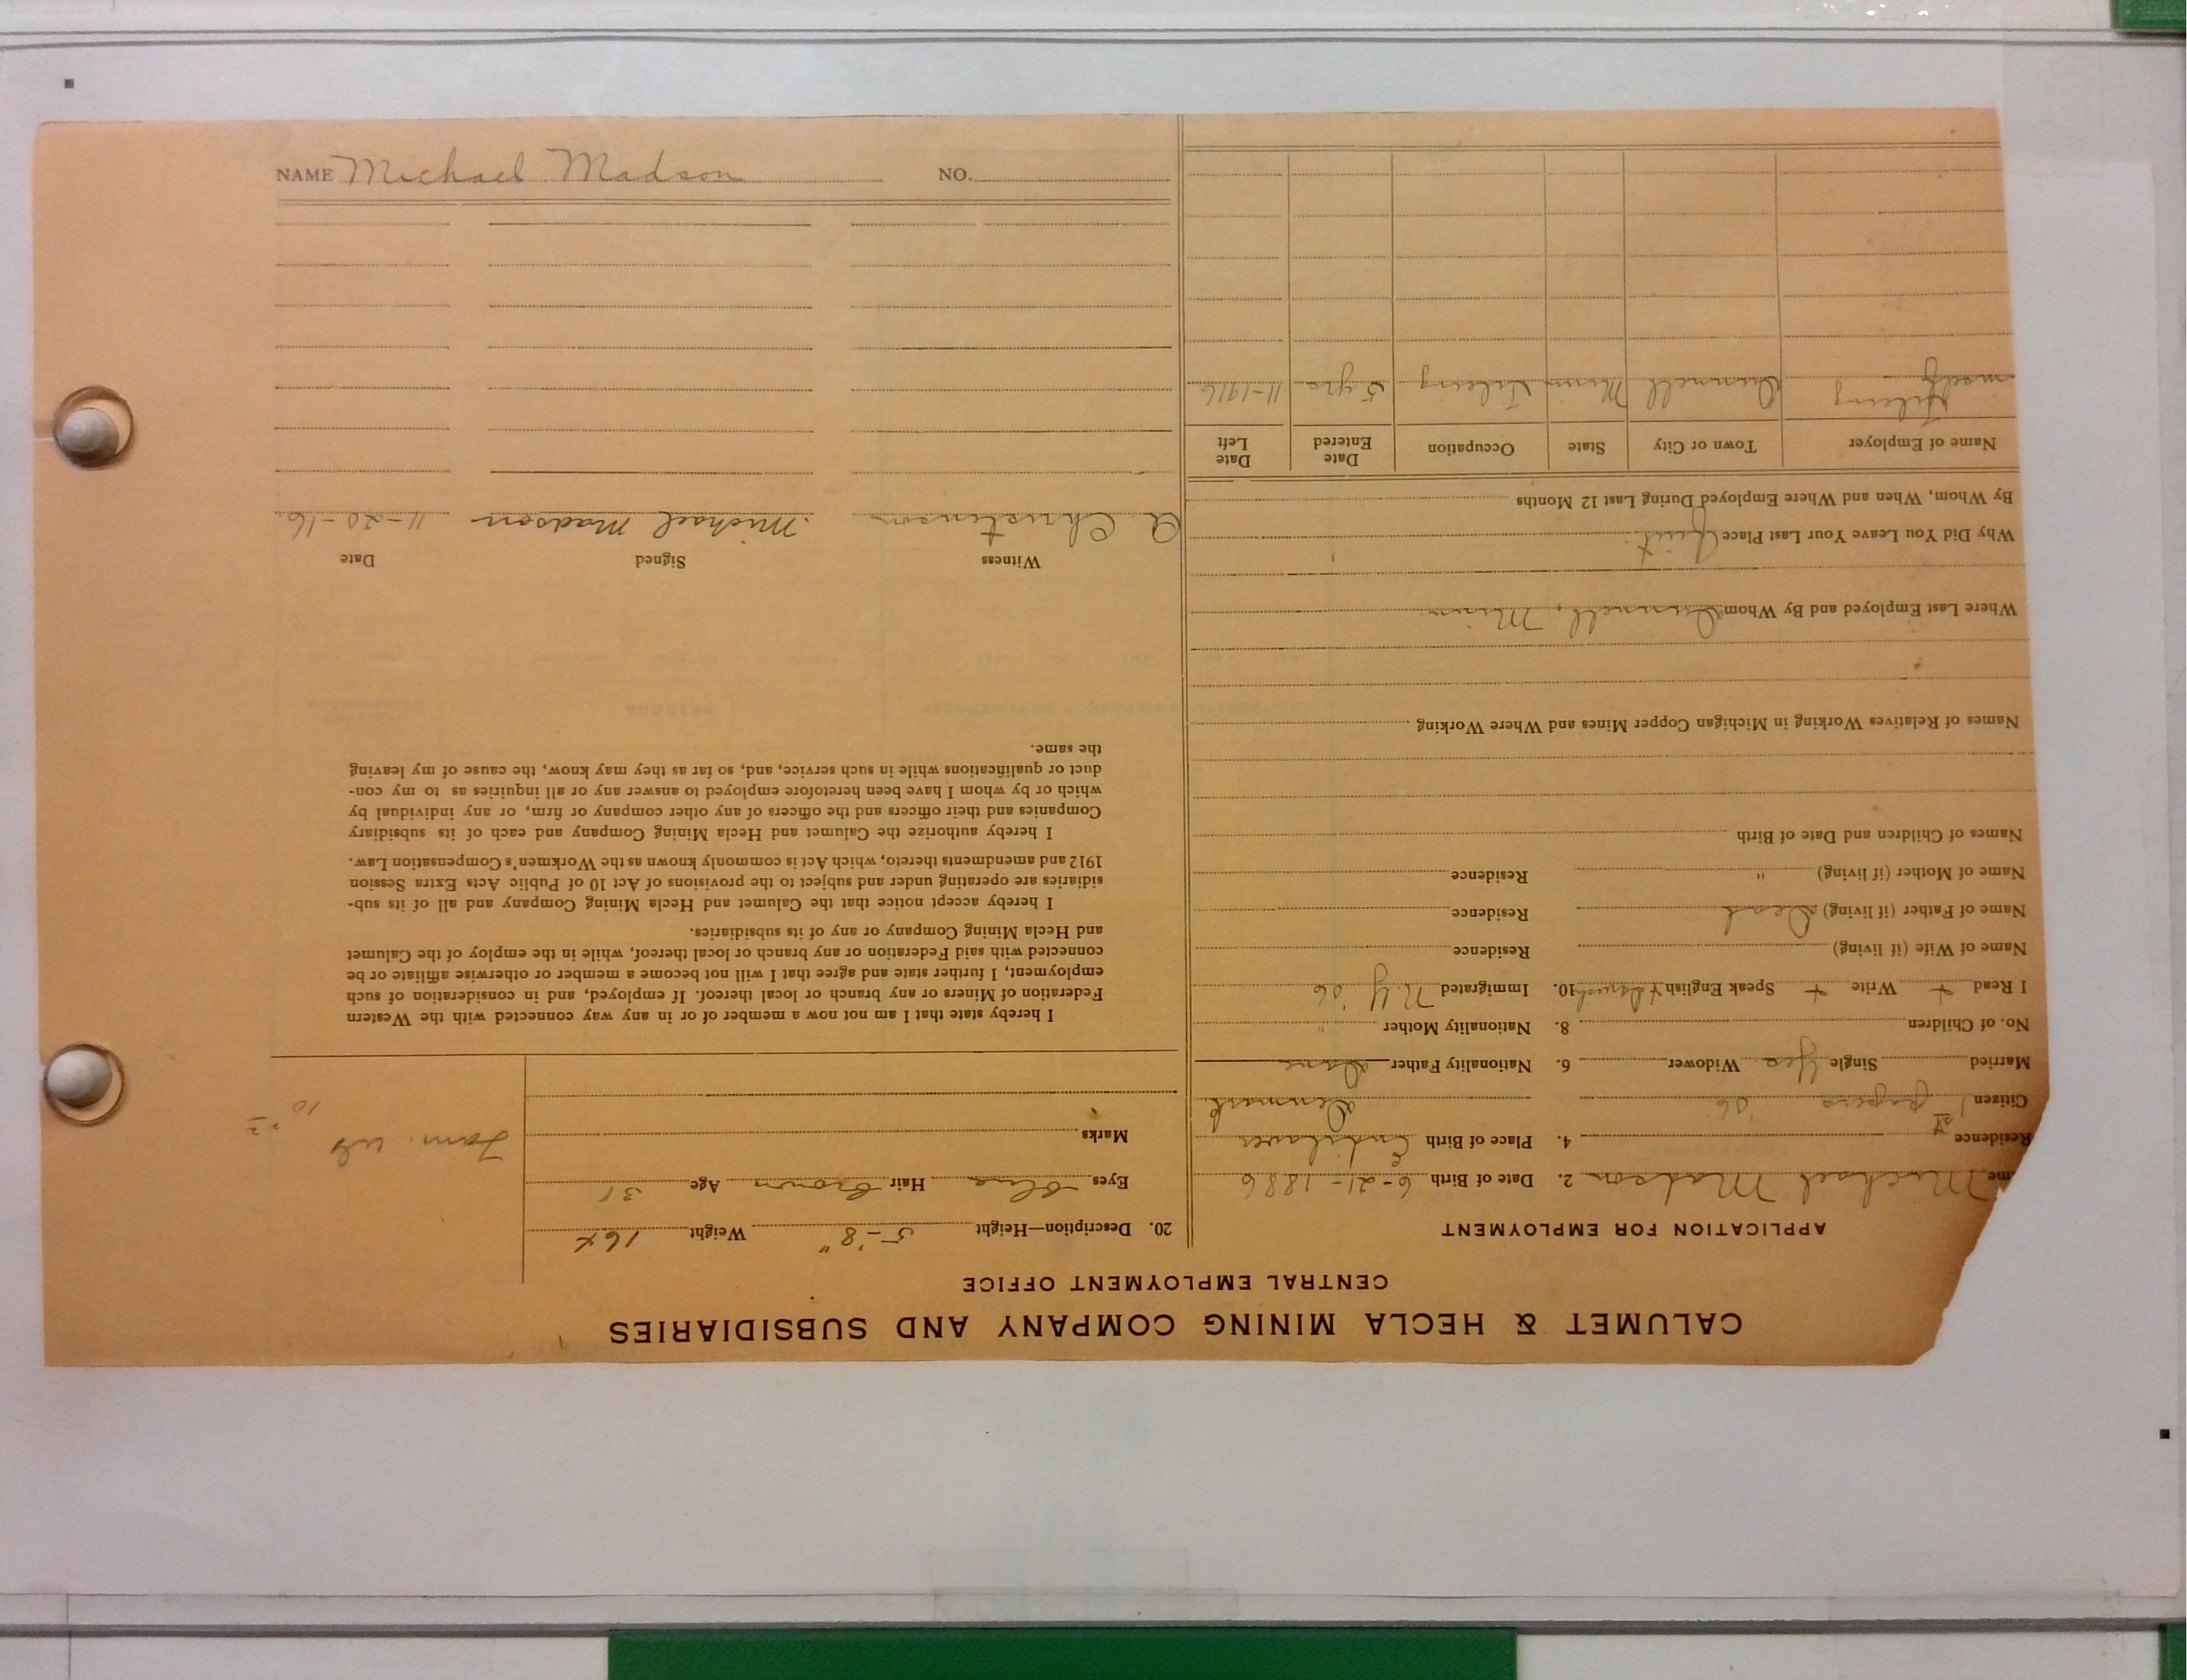 CALUMET & HECLA MINING COMPANY AND SUBSIDIARIES
CENTRAL EMPLOYMENT OFFICE
APPLICATION FOR EMPLOYMENT
me Michael Madson 2. Date of Birth 6-21-1886
Residence 4. Place of Birth
Denmark
Citizen 1st papers '06
Married Single Yes Widower 6. Nationality Father Dane
No. of Children 8. Nationality Mother "
I Read + Write + Speak English + Danish 10. Immigrated N.Y '06
Name of Wife (if living) Residence
Name of Father (if living) Dead Residence
Name of Mother (if living) " Residence
Names of Children and Date of Birth
Names of Relatives Working in Michigan Copper Mines and Where Working
Where Last Employed and By Whom Dunnell, Minn
Why Did You Leave Your Last Place Quit
By Whom, When and Where Employed During Last 12 Months
Name of Employer Town or City State Occupation Date Entered Date Left
Tileing
Dunnell Minn Tileing 5 yrs 11-1916
20. Description—Height 5-'8" Weight
Eyes blue Hair brown Age 31
Marks
I hereby state that I am not now a member of or in any way connected with the Western
Federation of Miners or any branch or local thereof. If employed, and in consideration of such
employment, I further state and agree that I will not become a member or otherwise affiliate or be
connected with said Federation or any branch or local thereof, while in the employ of the Calumet
and Hecla Mining Company or any of its subsidiaries.
I hereby accept notice that the Calumet and Hecla Mining Company and all of its sub-
sidiaries are operating under and subject to the provisions of Act 10 of Public Acts Extra Session
1912 and amendments thereto, which Act is commonly known as the Workmen's Compensation Law.
I hereby authorize the Calumet and Hecla Mining Company and each of its subsidiary
Companies and their officers and the officers of any other company or firm, or any individual by
which or by whom I have been heretofore employed to answer any or all inquiries as to my con-
duct or qualifications while in such service, and, so far as they may know, the cause of my leaving
the same.
Witness Signed Date
A Christenson Michael Madson 11-20-16
NAME Michael Madson NO.